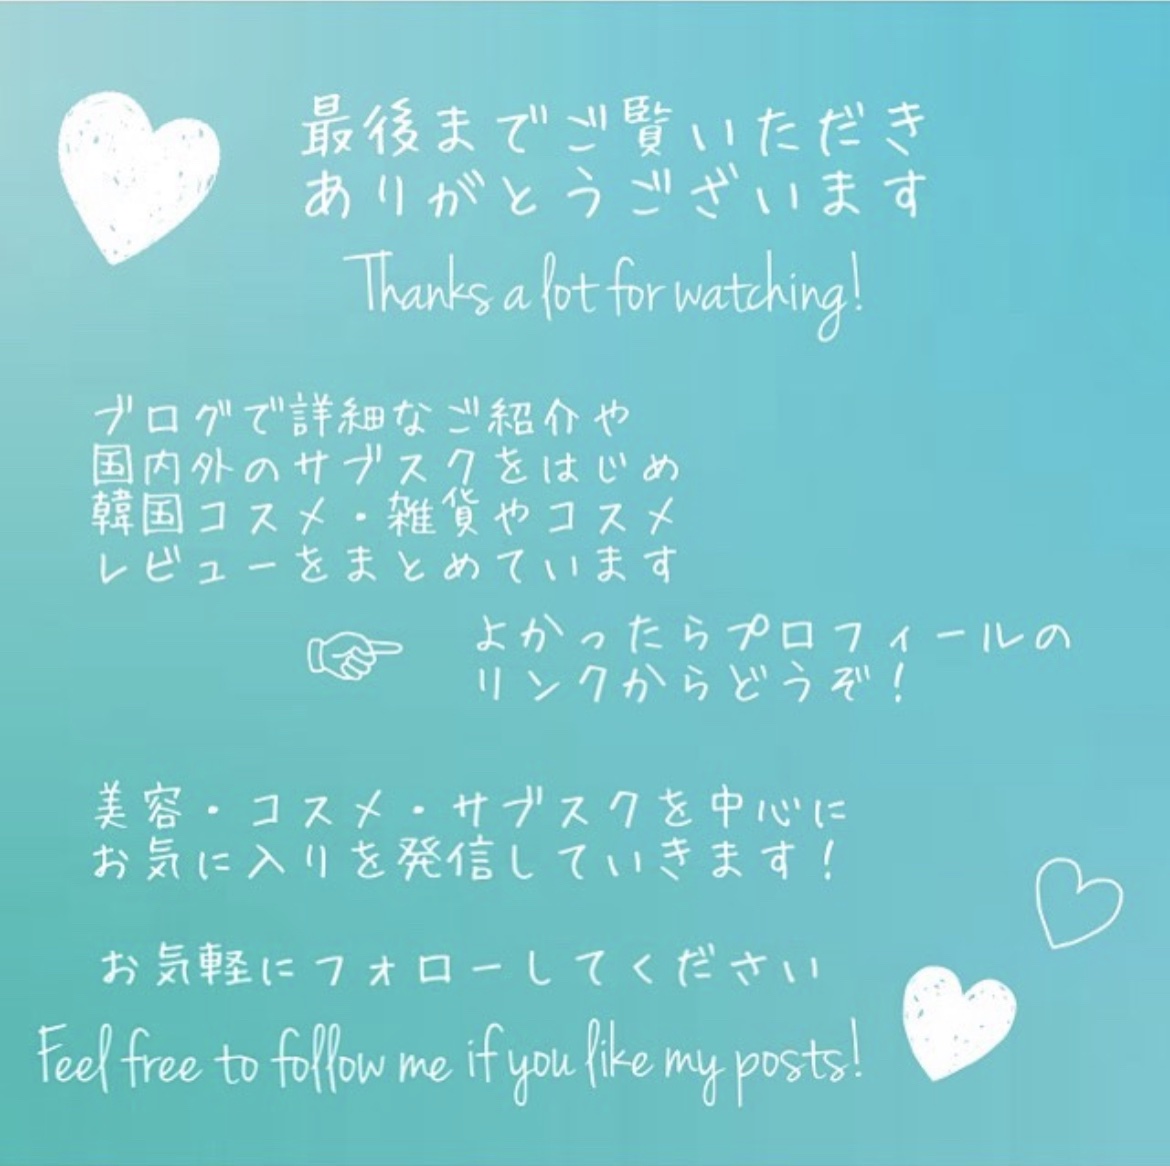 最後までご覧いただき
ありがとうございます
Thanks a lot for watching!
ブログで詳細なご紹介や
国内外のサブスクをはじめ
韓国コスメ・雑貨やコスメ
レビューをまとめています
よかったらプロフィールの
リンクからどうぞ！
美容・コスメ・サブスクを中心に
お気に入りを発信していきます！
お気軽にフォローしてください
Feel free to follow me if you like my posts!